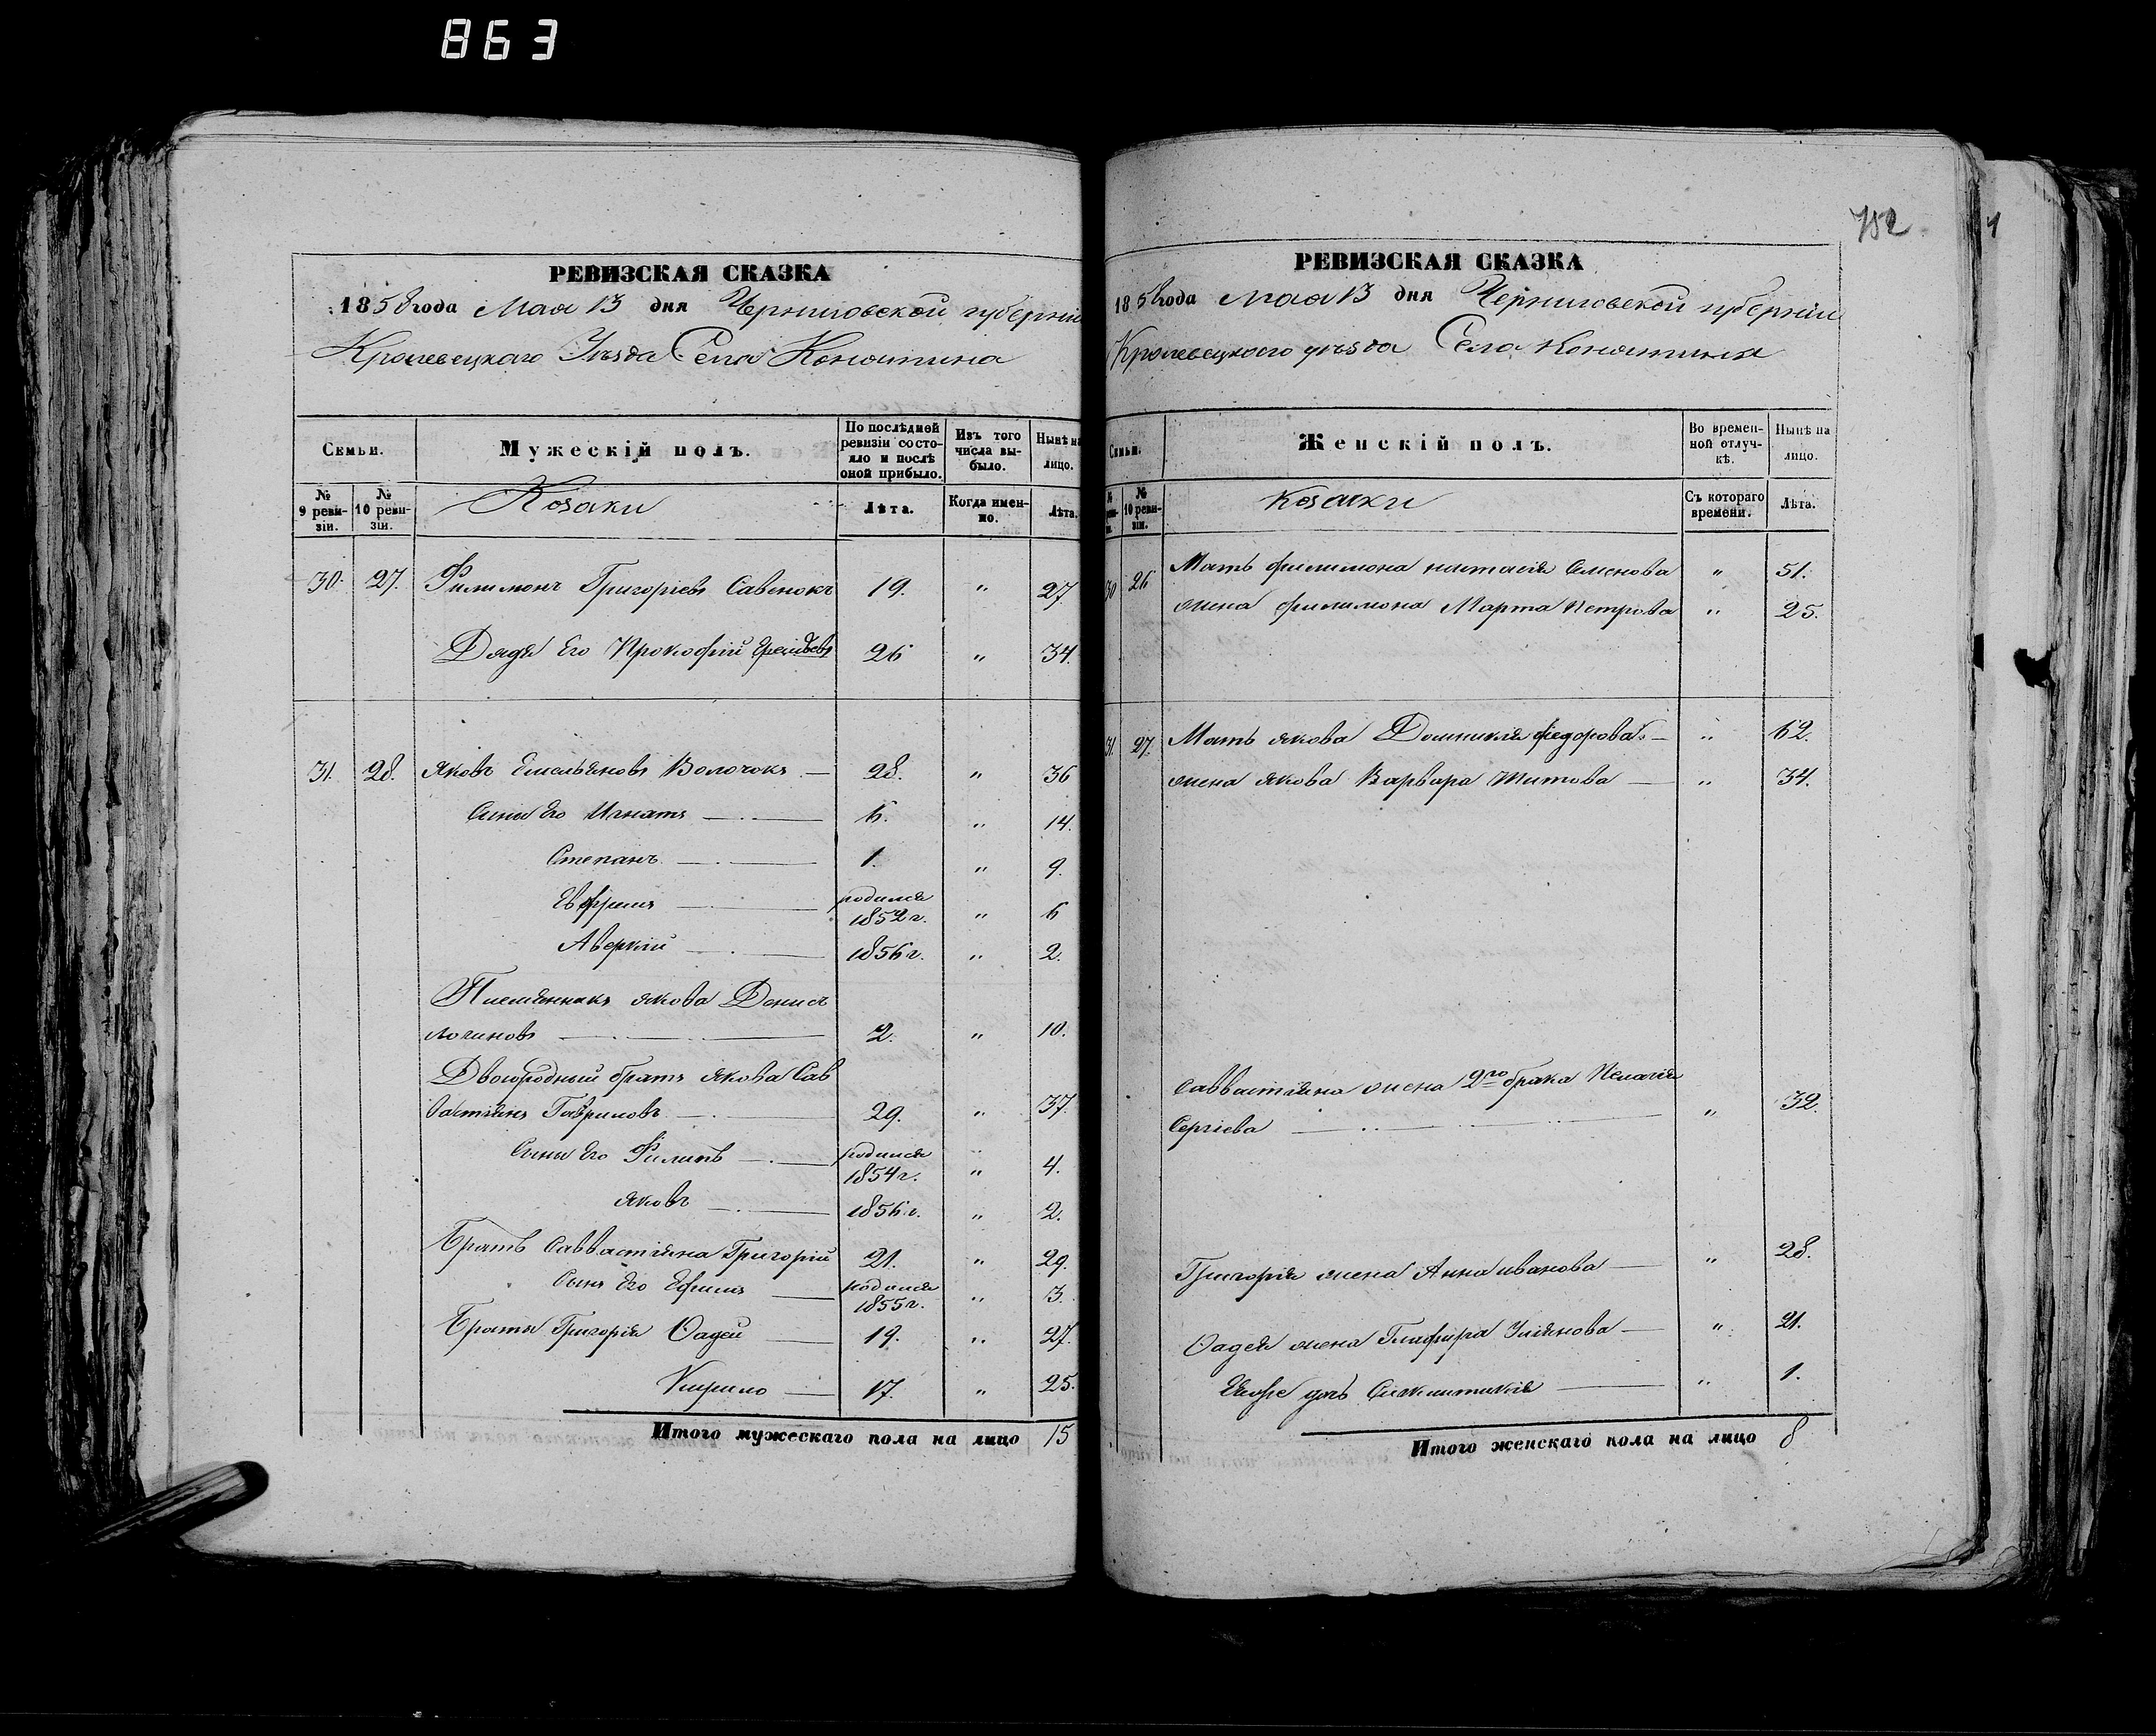 863
РЕВИЗСКАЯ СКАЗКА
1858 года Мая 13 дня Черниговской губерніи
Кролевецкаго Уѣзда Села Конятина
Семьи.
Мужескій полъ.
По послѣдней ревизіи состояло и послѣ оной прибыло.
Изъ того числа выбыло.
Нынѣ на лицо.
№ 9 ревизіи.
№ 10 ревизіи.
Козаки
Лѣта.
Когда именно.
Лѣта.
30. 27. Филимонъ Григоріевъ Савенокъ 19. " 27.
Дядя Его Прокофій 26 " 34.
31. 28. Яковъ Емельяновъ Волочокъ 28. " 36
Сыны Его Игнатъ 6. " 14.
Степанъ 1. " 9.
Евфимъ родился 1852 г. " 6
Аверкій 1856 г. " 2.
Племянникъ Якова Денисъ
Логиновъ 2. " 10.
Двоюродный братъ Якова Сав
вастіянъ Гавриловъ 29. " 37.
Сыны Его Филипъ родился 1854 г. " 4.
Яковъ 1856 г. " 2.
Братъ Савастіяна Григорій 21. " 29.
Сынъ Его Ефимъ родился 1855 г. " 3.
Браты Григорія Фадей 19. " 27.
Кирило 17. " 25.
Итого мужескаго пола на лицо 15
752
РЕВИЗСКАЯ СКАЗКА
1858 года Мая 13 дня Черниговской губерніи
Кролевецкого уѣзда Села Конятина
Семьи.
Женскій полъ.
Во временной отлучкѣ.
Нынѣ на лицо.
№ 10 ревизіи.
Козаки
Съ котораго времени.
Лѣта.
30 26 Мать филимона настасія Семенова " 51.
жена филимона Марта Петрова " 25.
31. 27. Мать якова Домникія федорова " 62.
жена якова Варвара Титова " 34.
Саввастіяна жена 2го брака Пелагія
Сергіева " 32.
Григорія жена Анна иванова " 28.
Фадея жена Глафира Уліянова " 21.
дочь " 1.
Итого женскаго пола на лицо 8